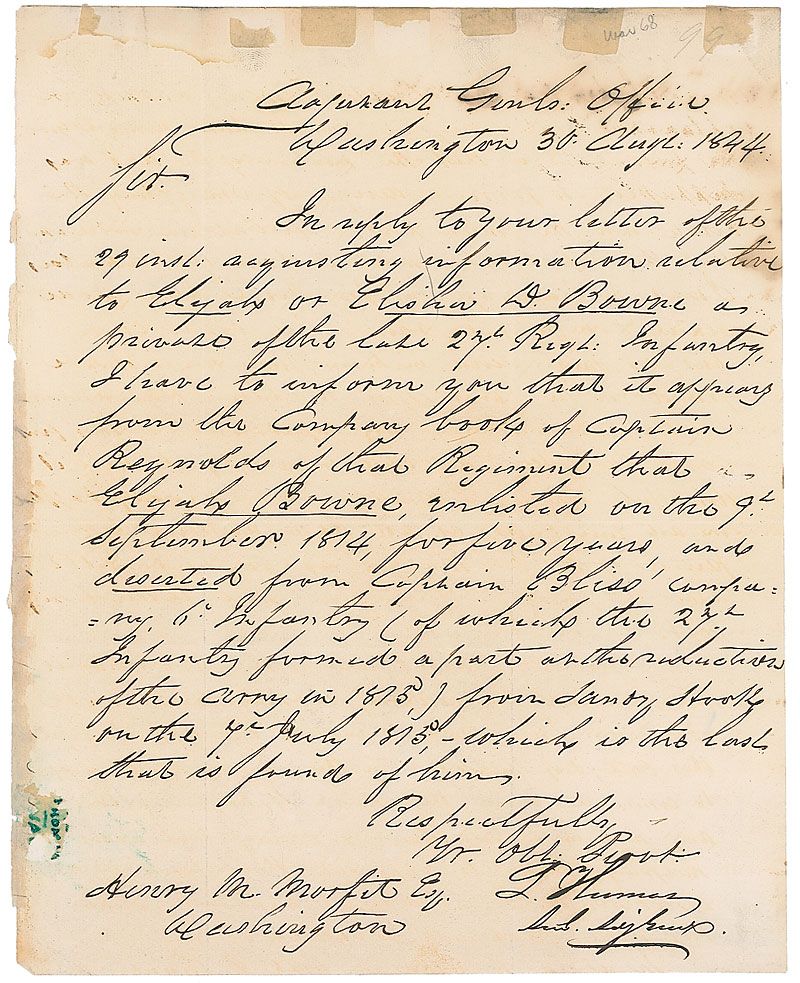 Mar 68
99
Adjutant Genls: Office
Washington 30 Augt: 1844.
Sir.
In reply to your letter of the
29 inst: requesting information relative
to Elijah or Elisha D. Bowne as
private of the late 27th Regt: Infantry,
I have to inform you that it appears
from the Company book of Captain
Reynolds of that Regiment that
Elijah Bowne, enlisted on the 9th
September 1814, for five years, and
deserted from Captain Bliss' compa=
=ny, 6th Infantry (of which the 27th
Infantry formed a part at the reduction
of the army in 1815,) from Sandy Hook
on the 7th July 1815, - which is the last
that is found of him.
Respectfully
Yr. Obt. Servt
L. Thomas
Henry M. Morfit Esq.
Washington